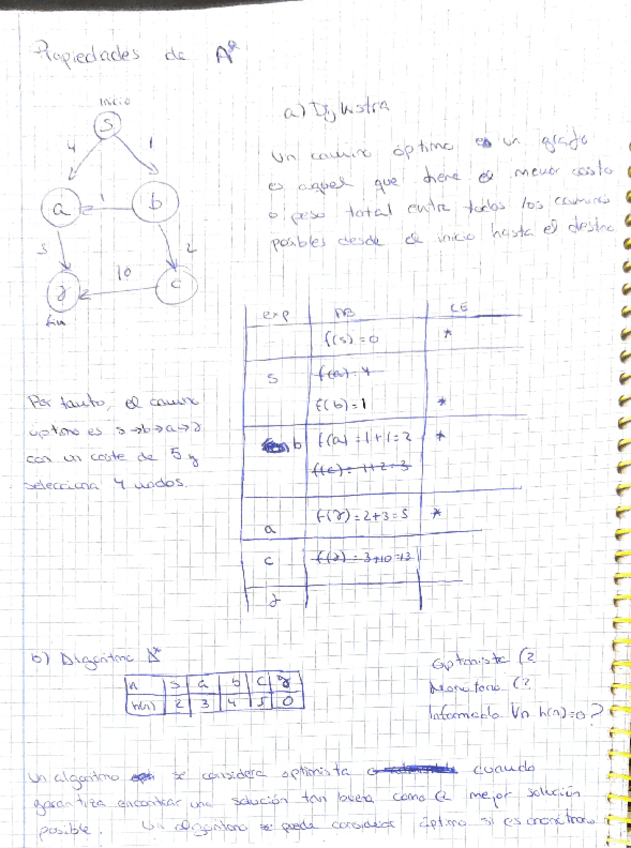 Propiedades de A*
inicio
S
4
1
a
1
b
3
2
γ
10
c
fin
a) Dijkstra
Un camino óptimo en un grafo
es aquel que tiene el menor costo
o peso total entre todos los caminos
posibles desde el inicio hasta el destino
exp AB CE
f(s)=0 *
s f(a)=4
f(b)=1 *
b f(a)=1+1=2 *
f(c)=1+2=3
a f(γ)=2+3=5 *
c f(γ)=3+10=13
γ
Por tanto, el camino
optimo es s→b→a→γ
con un coste de 5 y
selecciona 4 nodos.
b) Algoritmo A*
n s a b c γ
h(n) 2 3 4 5 0
Optimista (?
Monótono (?
Informado ∀n h(n)=0?
Un algoritmo se considera optimista cuando
garantiza encontrar una solución tan buena como la mejor solución
posible. Un algoritmo se puede considerar óptimo si es monótrono